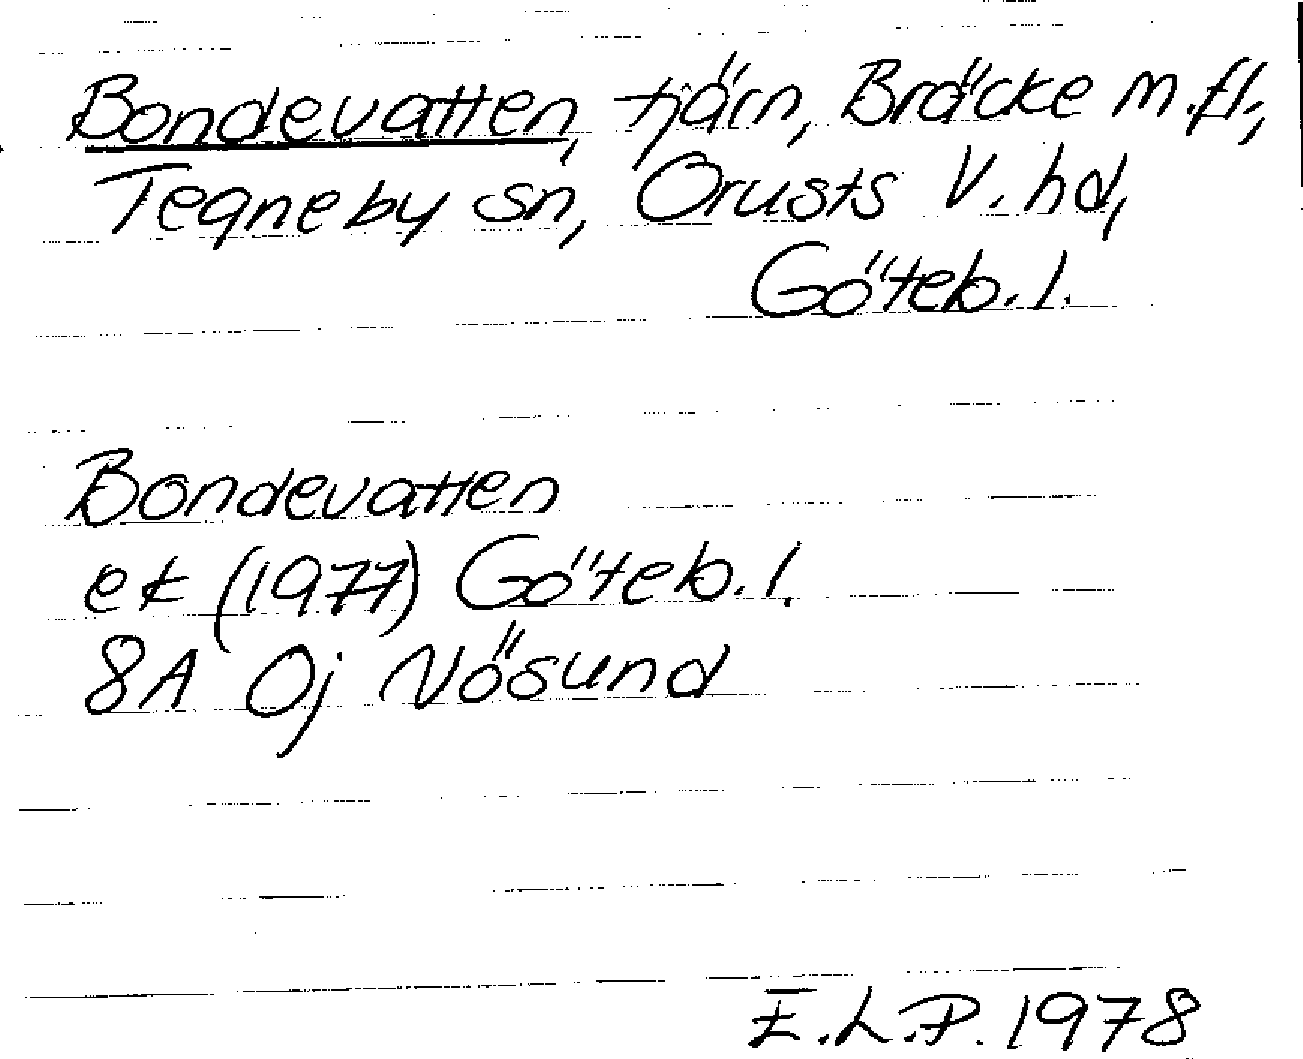 Bondevatten, tjärn, Bräcke m.fl.,
Tegneby sn, Orusts V. hd,
Göteb. l.
Bondevatten
ek (1977) Göteb. l.
8A Oj Nösund
E.L.P. 1978